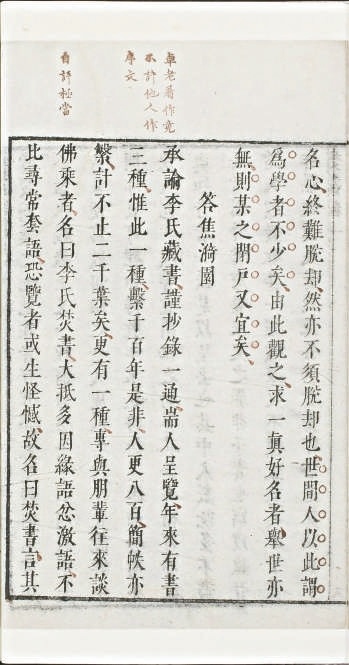 卓老著作竟
不許他人作
序文
自評極當
名心終難脫却然亦不須脫却也世間人以此謂
為學者不少矣由此觀之求一真好名者舉世亦
無則某之閉戶又宜矣
答焦漪園
承諭李氏藏書謹抄錄一通耑人呈覽年來有書
三種惟此一種繫千百年是非人更八百簡帙亦
繁計不止二千葉矣更有一種專與朋輩往來談
佛乘者名曰李氏焚書大抵多因緣語忿激語不
比尋常套語恐覽者或生怪憾故名曰焚書言其